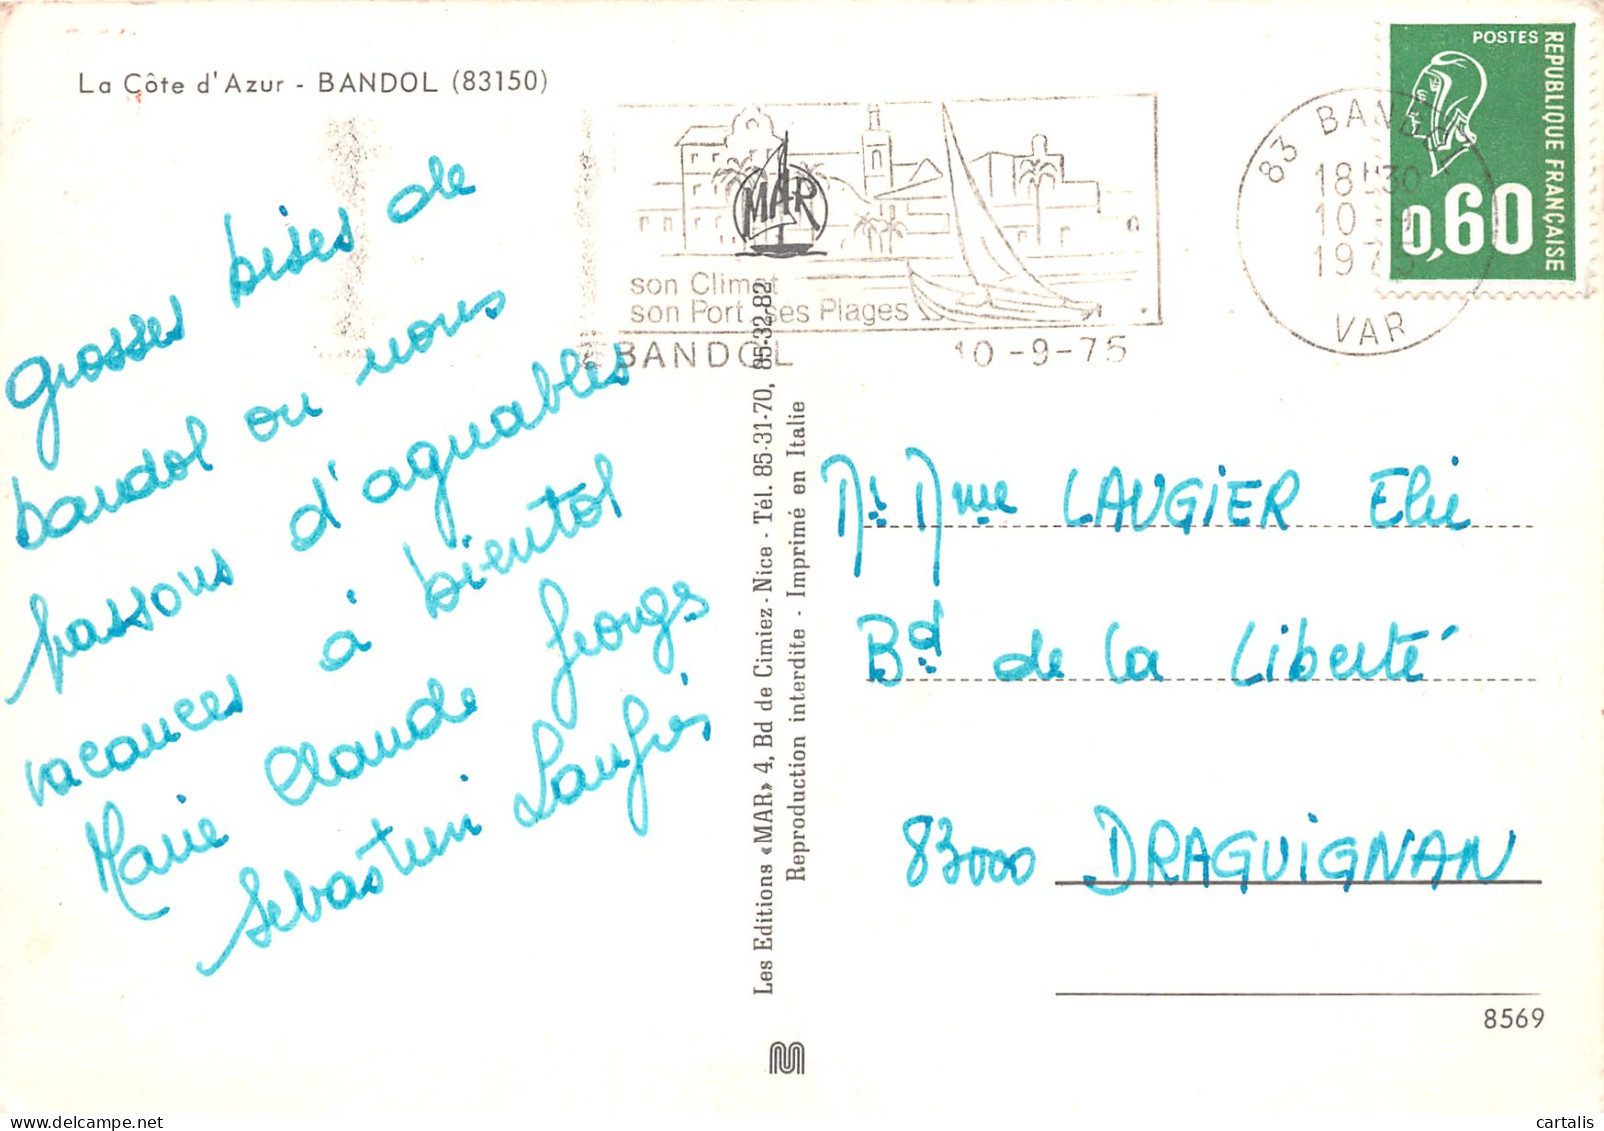 La Côte d'Azur - BANDOL (83150)
grosses bises de
bandol ou nous
passons d'aguables
vacances à bientot
Marie Claude Georges
Sebastien
MAR
son Climat
son Port ses Plages
BANDOL 10-9-75
83 BANDOL
18H30
10-9
1975
VAR
POSTES
REPUBLIQUE FRANÇAISE
0,60
Les Editions «MAR» 4, Bd de Cimiez - Nice - Tél. 85-31-70, 85-32-82
Reproduction interdite - Imprimé en Italie
Mr Mme LAUGIER Elie
Bd de la Liberté
83000 DRAGUIGNAN
8569
cartalis
delcampe.net